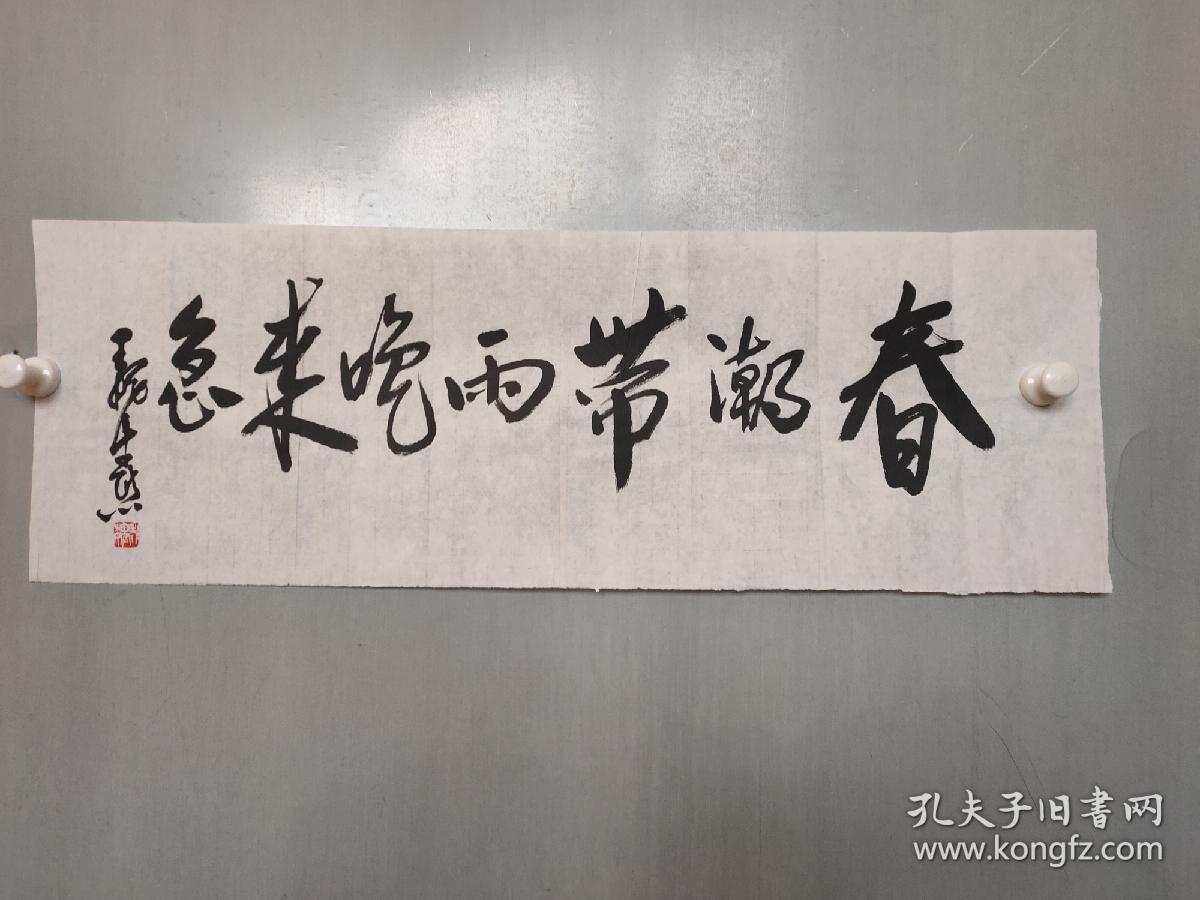 春潮带雨晚来急
孔夫子旧書网
www.kongfz.com